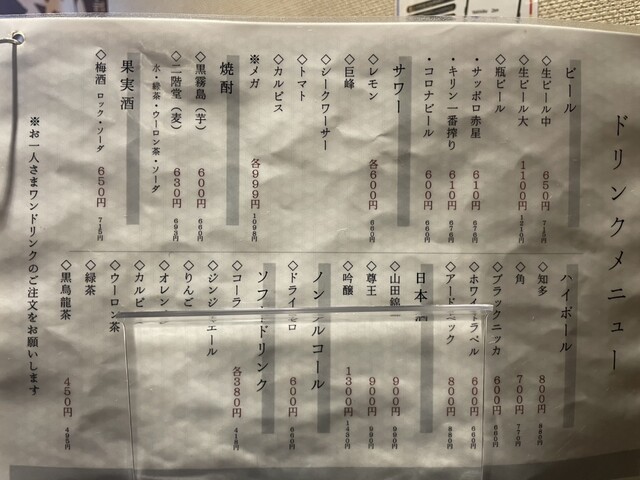 ドリンクメニュー
ビール
◇生ビール中 650円 715円
◇生ビール大 1100円 1210円
◇瓶ビール
・サッポロ赤星 610円 671円
・キリン一番搾り 610円 671円
・コロナビール 600円 660円
サワー
◇レモン 各600円 660円
◇巨峰
◇シークワーサー
◇トマト
◇カルピス
※メガ 各999円 1098円
焼酎
◇黒霧島（芋） 600円 660円
◇二階堂（麦） 630円 693円
水・緑茶・ウーロン茶・ソーダ
果実酒
◇梅酒 ロック・ソーダ 650円 715円
ハイボール
◇知多 800円 880円
◇角 700円 770円
◇ブラックニッカ 600円 660円
◇ホワイトラベル 600円 660円
◇アードベック 800円 880円
日本酒
◇山田錦 900円 990円
◇尊王 900円 990円
◇吟醸 1300円 1430円
ノンアルコール
◇ドライゼロ 600円 660円
ソフトドリンク
◇コーラ 各380円 418円
◇ジンジャエール
◇りんご
◇オレン
◇カルピ
◇ウーロン茶
◇緑茶
◇黒烏龍茶 450円 495円
※お一人さまワンドリンクのご注文をお願いします